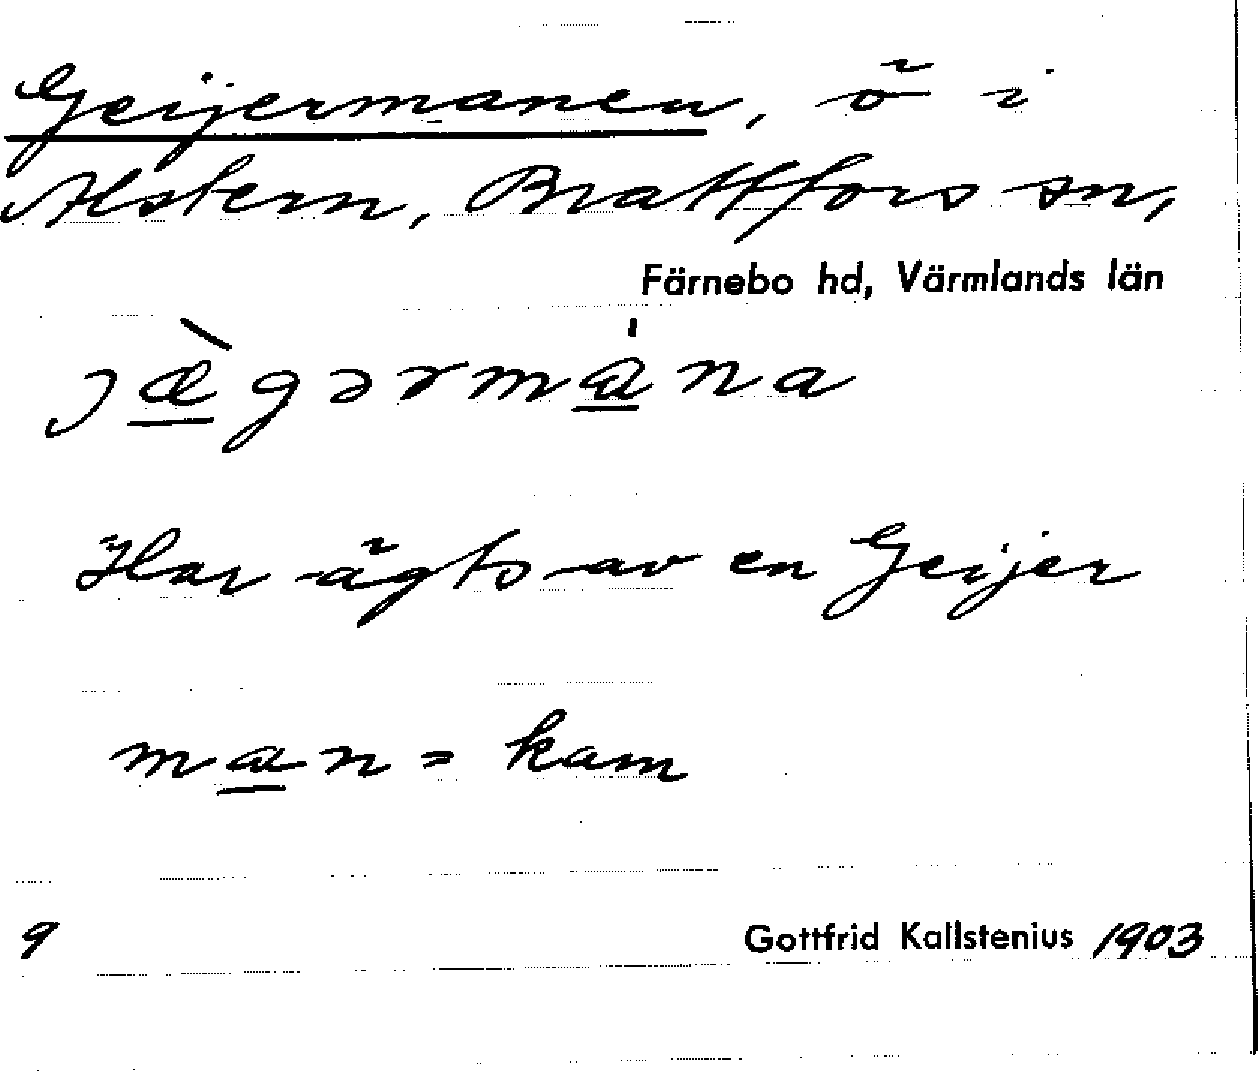 Geijermanen, ö i
Alstern, Brattfors sn,
Färnebo hd, Värmlands län
jæ̀gərmana
Har ägts av en Geijer
man = kam
9 Gottfrid Kallstenius 1903